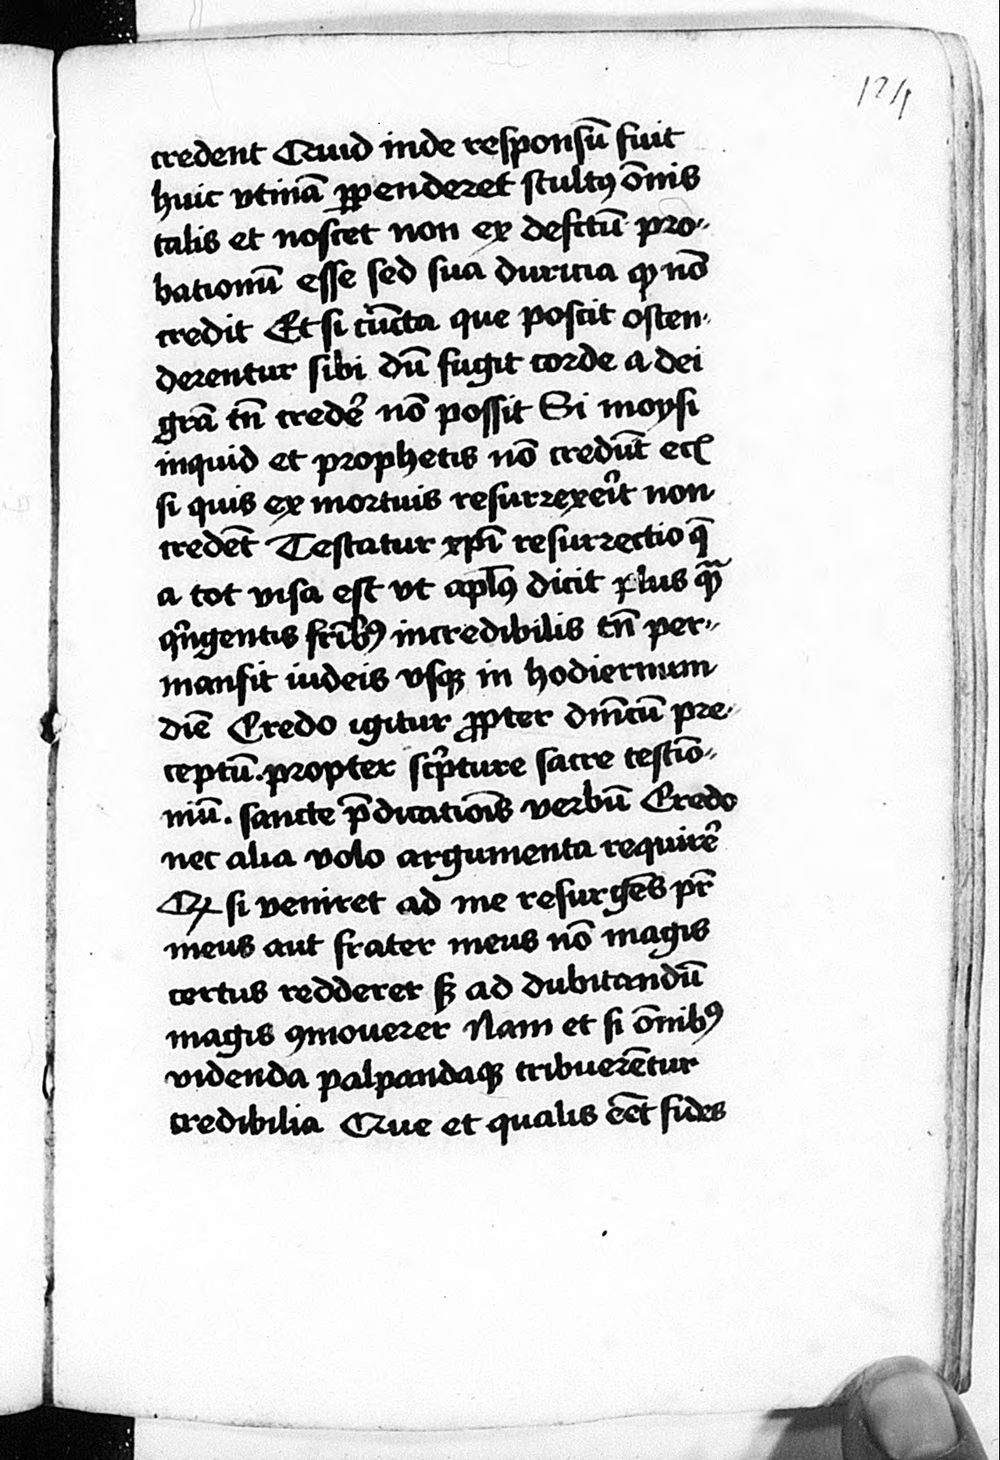 124
credent Quid inde responsū fuit
huic vtinā ꝓpenderet stultꝰ ōmis
talis et noscet non ex defctū pro-
bationū esse sed sua duricia qꝫ nō
credit Et si cūcta que poscit osten-
derentur sibi dū fugit corde a dei
grā tn̄ credeř nō possit Si moysi
inquid et prophetis nō credūt ecꝭ
si quis ex mortuis resurrexeři̇t non
credēt Testatur xp̄i resurrectio q̄
a tot visa est vt apl̄ꝰ dicit plus qᷓꝫ
qn̄gentis frībꝰ incredibilis tn̄ per-
mansit iudeis vsqꝫ in hodiernum
diē Credo igitur ꝓpter dn̄icū pre-
ceptū. propter scͥpture sacre testīo-
niū. sancte p̄dicatiōis verbū Credo
nec alia volo argumenta requireř
Qꝫ si veniret ad me resurgēs pr̄
meus aut frater meus nō magis
certus redderer sꝫ ad dubitandū
magis ꝯmouerer Nam et si ōmibꝰ
videnda palpandaqꝫ tribuerētur
credibilia Que et qualis ēēt fides